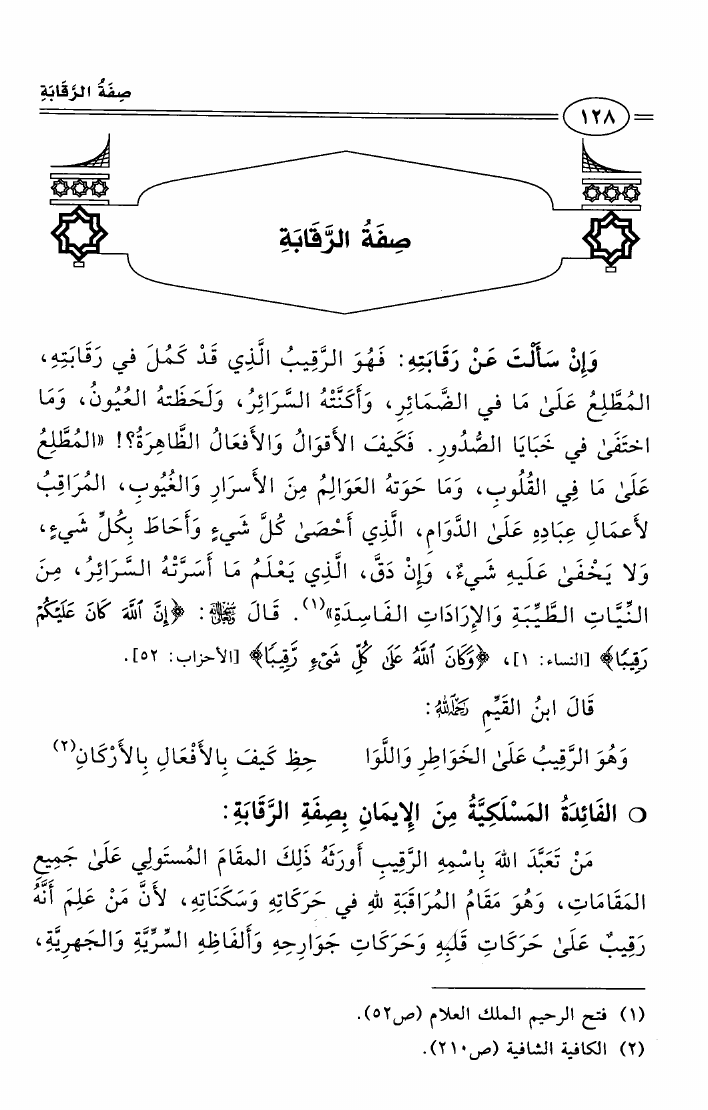 صِفَةُ الرَّقَابَةِ
١٢٨
صِفَةُ الرَّقَابَةِ
وَإِنْ سَأَلْتَ عَنْ رَقَابَتِهِ: فَهُوَ الرَّقِيبُ الَّذِي قَدْ كَمُلَ في رَقَابَتِهِ،
المُطَّلِعُ عَلَىٰ مَا في الضَّمَائِرِ، وَأَكَنَّتْهُ السَّرَائِرُ، وَلَحَظَتهُ العُيُونُ، وَمَا
اختَفَىٰ في خَبَايَا الصُّدُورِ. فَكَيفَ الأقوَالُ وَالأفعَالُ الظَّاهِرَةُ؟! «المُطَّلِعُ
عَلَىٰ مَا فِي القُلُوبِ، وَمَا حَوَتهُ العَوَالِمُ مِنَ الأسرَارِ وَالغُيُوبِ، المُرَاقِبُ
لأعمَالِ عِبَادِهِ عَلَىٰ الدَّوَامِ، الَّذِي أَحْصَىٰ كُلَّ شَيءٍ وَأَحَاطَ بِكُلِّ شَيءٍ،
وَلا يَخْفَىٰ عَلَيهِ شَيءٌ، وَإِنْ دَقَّ، الَّذِي يَعْلَمُ مَا أَسَرَّتْهُ السَّرَائِرُ، مِنَ
النِّيَّاتِ الطَّيِّبَةِ وَالإِرَادَاتِ الفَاسِدَةِ»(١). قَالَ: ﴿إِنَّ ٱللَّهَ كَانَ عَلَيْكُمْ
رَقِيبًا﴾ [النساء: ١]، ﴿وَكَانَ ٱللَّهُ عَلَىٰ كُلِّ شَىْءٍ رَّقِيبًا﴾ [الأحزاب: ٥٢].
قَالَ ابنُ القَيِّمِ رَحِمَهُ اللهُ:
وَهُوَ الرَّقِيبُ عَلَىٰ الخَوَاطِرِ وَاللَّوَا حِظِ كَيفَ بِالأَفْعَالِ بِالأَرْكَانِ(٢)
○ الفَائِدَةُ المَسْلَكِيَّةُ مِنَ الإِيمَانِ بِصِفَةِ الرَّقَابَةِ:
مَنْ تَعَبَّدَ اللهَ بِاسْمِهِ الرَّقِيبِ أَورَثَهُ ذَلِكَ المقَامَ المُستَولِي عَلَىٰ جَمِيعِ
المَقَامَاتِ، وَهُوَ مَقَامُ المُرَاقَبَةِ للهِ في حَرَكَاتِهِ وَسَكَنَاتِهِ، لأَنَّ مَنْ عَلِمَ أَنَّهُ
رَقِيبٌ عَلَىٰ حَرَكَاتِ قَلبِهِ وَحَرَكَاتِ جَوَارِحِهِ وَأَلفَاظِهِ السِّرِّيَّةِ وَالجَهرِيَّةِ،
(١) فتح الرحيم الملك العلام (ص٥٢).
(٢) الكافية الشافية (ص٢١٠).